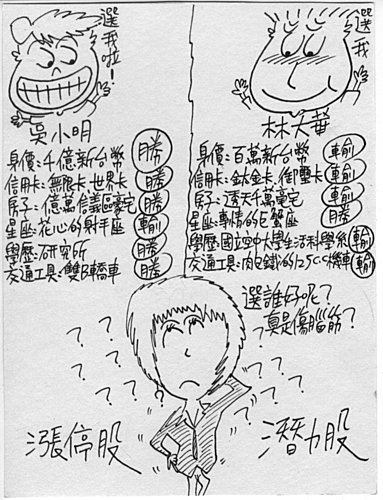 選我啦!
吳小明
身價:千億新台幣 勝
信用卡:無限卡、世界卡 勝
房子:億萬信義區豪宅 勝
星座:花心的射手座 輸
學歷:研究所 勝
交通工具:雙B轎車 勝
選我
林大華
身價:百萬新台幣 輸
信用卡:鈦金卡、御璽卡 輸
房子:透天千萬豪宅 輸
星座:專情的巨蟹座 勝
學歷:國立空中大學生活科學系 輸
交通工具:肉包鐵的125CC機車 輸
選誰好呢?
真是傷腦筋?
? ? ? ? ? ? ? ?
? ? ? ? ? ? ?
漲停股
潛力股